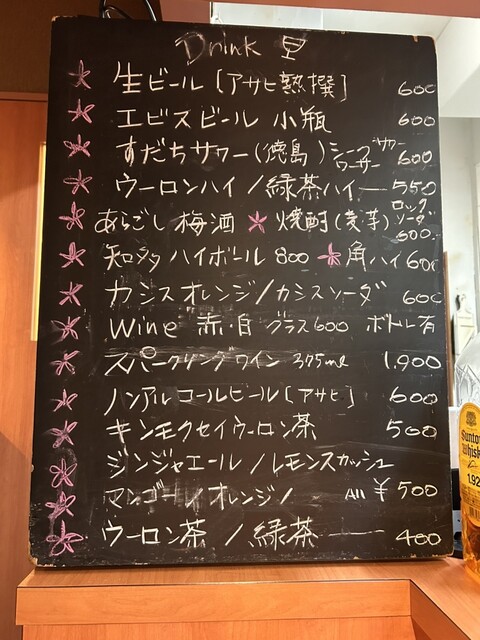 Drink
生ビール[アサヒ熟撰] 600
エビスビール 小瓶 600
すだちサワー(徳島)シークワーサーサワー 600
ウーロンハイ/緑茶ハイ 550
あらごし梅酒 焼酎(麦芋)ロックソーダ 600
知多ハイボール 800 角ハイ 600
カシスオレンジ/カシスソーダ 600
Wine 赤・白 グラス600 ボトル有
スパークリングワイン 375ml 1,900
ノンアルコールビール[アサヒ] 600
キンモクセイウーロン茶 500
ジンジャエール/レモンスカッシュ
マンゴー/オレンジ/ All ¥500
ウーロン茶/緑茶 400
Suntory
Whisky